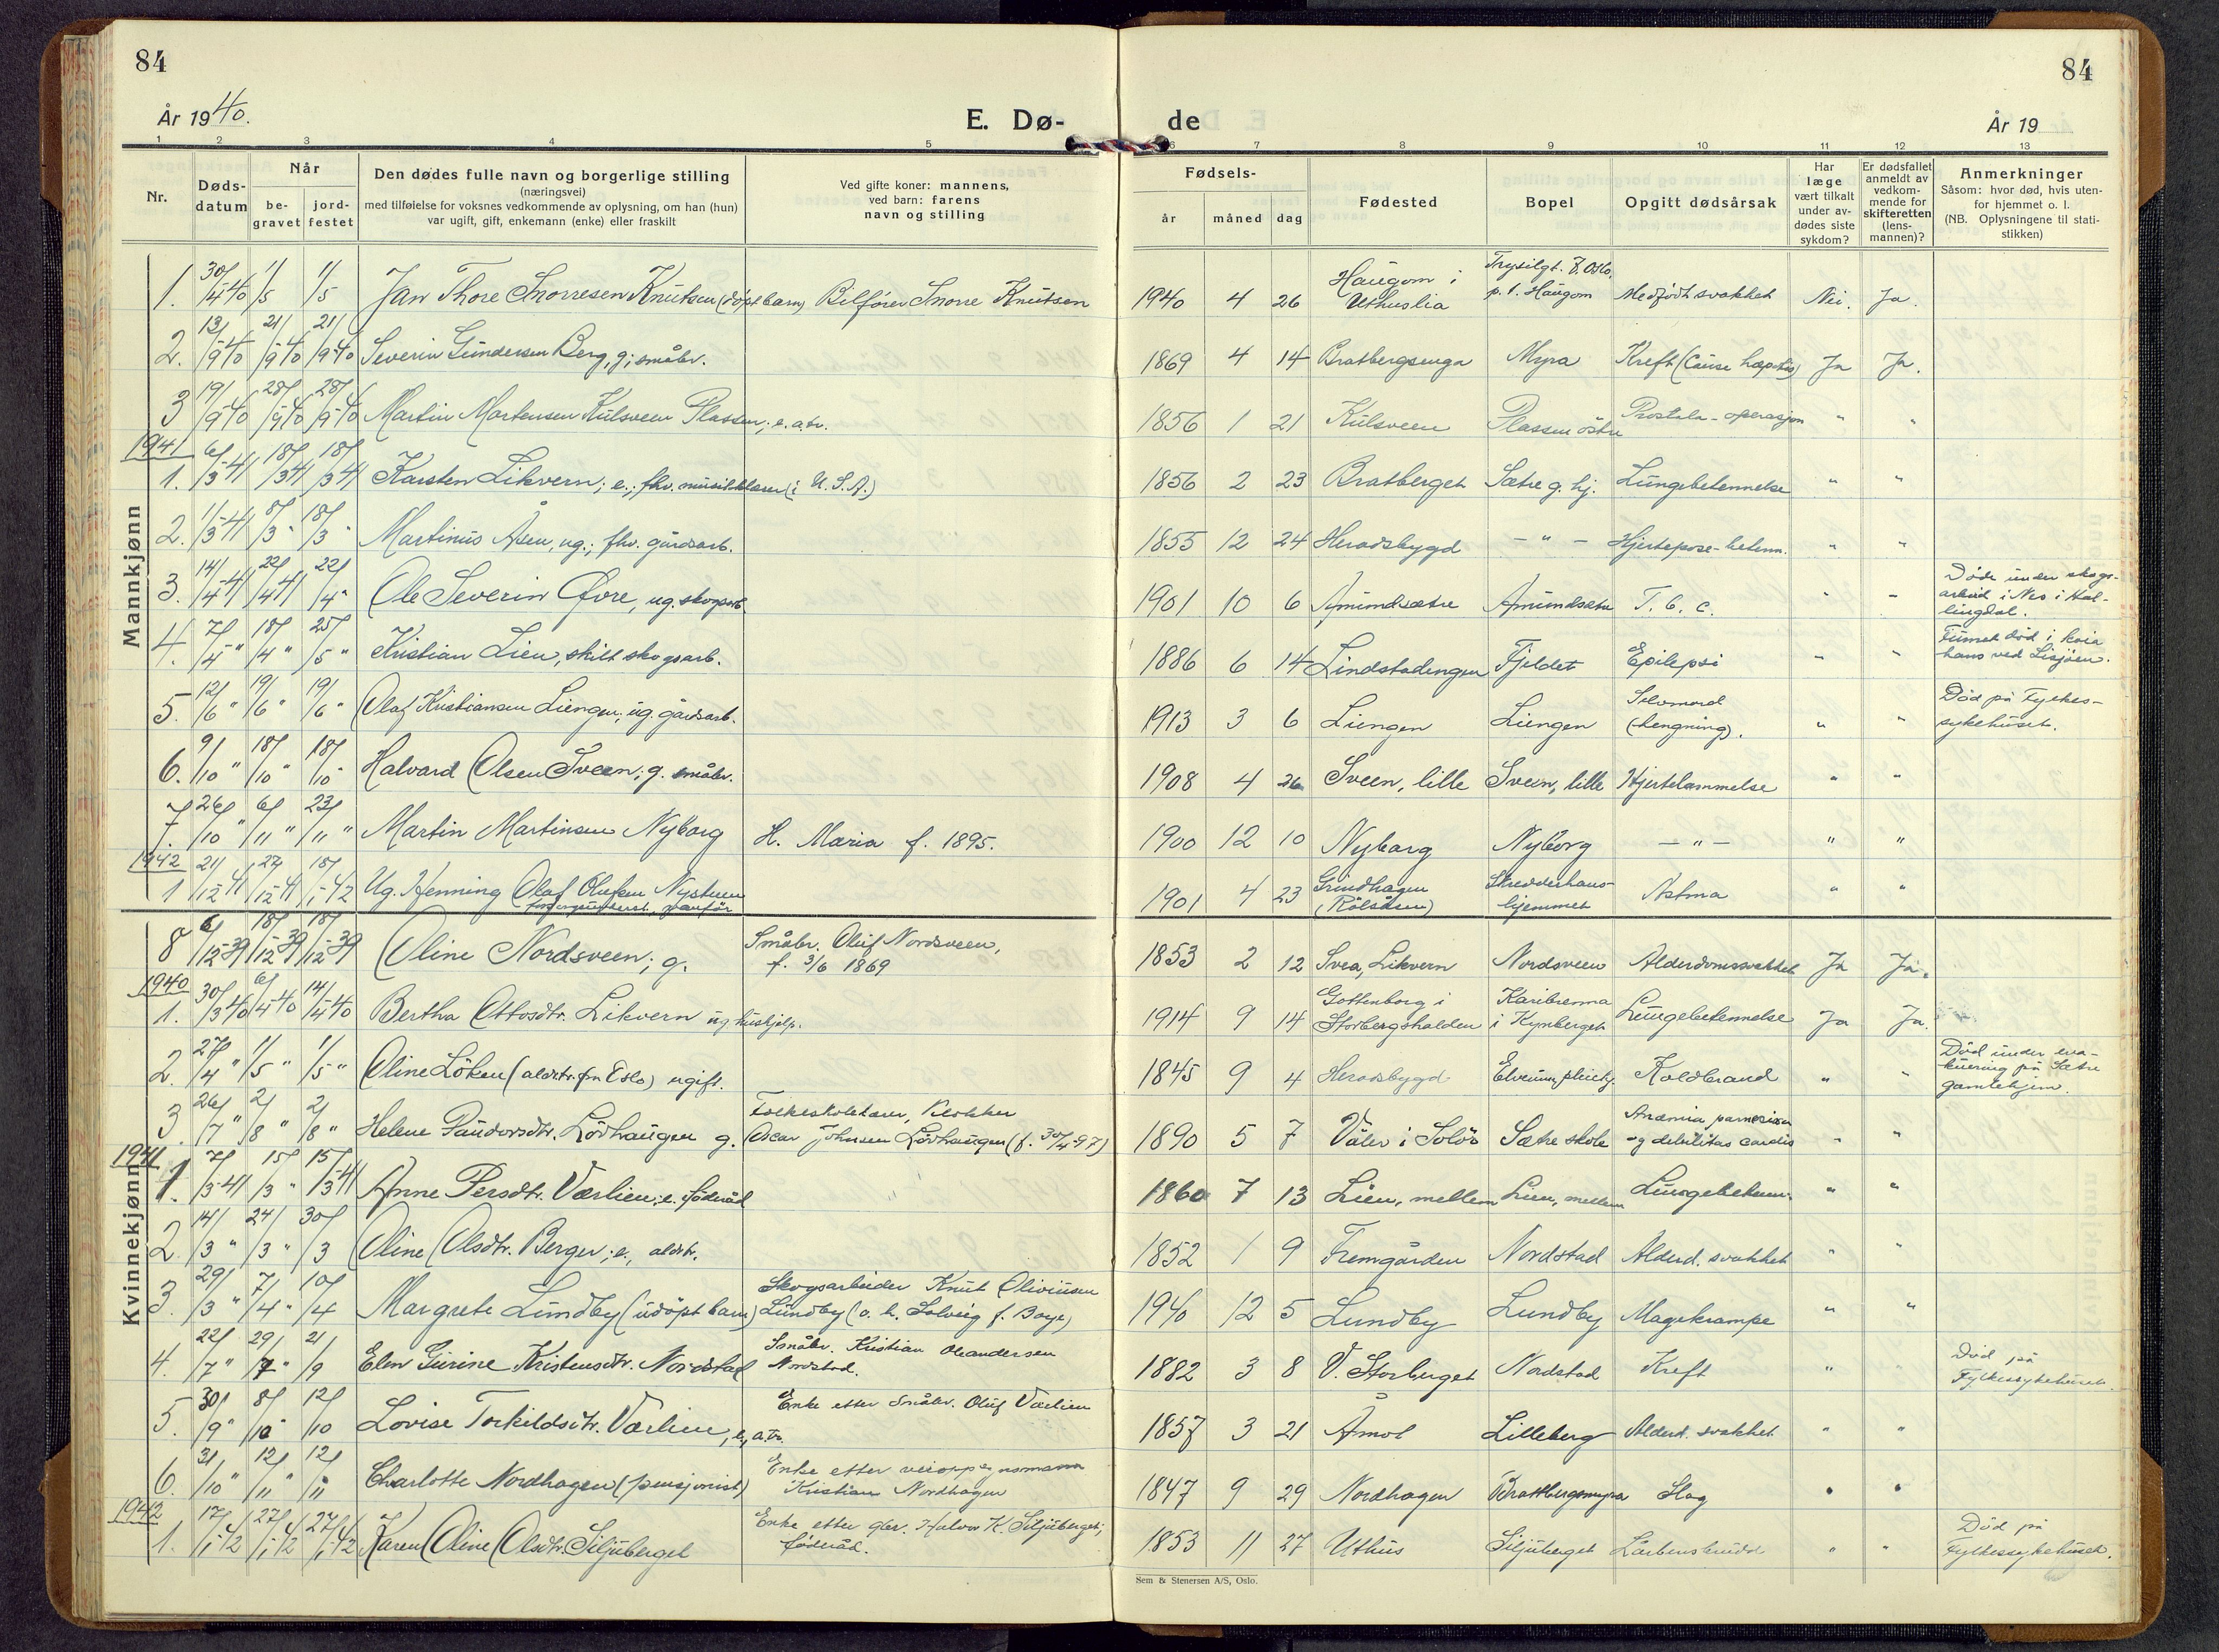 84
84
År 1940.
E. Dø-
de
År 19
1 2 3 4 5 6 7 8 9 10 11 12 13
Nr.
Døds-
datum
Når
be-
gravet
jord-
festet
Den dødes fulle navn og borgerlige stilling
(næringsvei)
med tilføielse for voksnes vedkommende av oplysning, om han (hun)
var ugift, gift, enkemann (enke) eller fraskilt
Ved gifte koner: mannens,
ved barn: farens
navn og stilling
Fødsels-
år måned dag
Fødested
Bopel
Opgitt dødsårsak
Har
læge
vært tilkalt
under av-
dødes siste
sykdom?
Er dødsfallet
anmeldt av
vedkom-
mende for
skifteretten
(lens-
mannen)?
Anmerkninger
Såsom: hvor død, hvis uten-
for hjemmet o. l.
(NB. Oplysningene til stati-
stikken)
Mannkjønn
1. 30/4-40 1/5 1/5 Jan Thore Snorresen Knutsen (døpt barn) Bilfører Snorre Knutsen 1940 4 26 Haugom i Uthuslia Trysilgt. 7. Oslo, p. t. Haugom Medfødt svakhet Nei. Ja.
2. 13/9-40 21/9-40 21/9-40 Severin Gundersen Berg, g; småbr. 1869 4 14 Bratbergsenga Myra Kreft Ja Ja.
3 19/9-40 28/9-40 28/9-40 Martin Martensen Kulsveen Plassen; e. a.tr. 1856 1 21 Kulsveen Plassen østre Prostata-operasjon " "
1941
1. 6/3-41 18/3 41 18/3 41 Karsten Likvern; e.; fhv. musiklærer (i U.S.A.) 1856 2 23 Bratberget Sætre g. hj. Lungebetennelse " "
2. 1/3-41 8/3 " 18/3 " Martinus Åsen, ug.; fhv. gårdsarb. 1855 12 24 Heradsbygd — " — Hjertepose-betenn. " "
3. 14/4-41 22/4 41 22/4 " Ole Severin Øvre, ug. skogsarb 1901 10 6 Amundsætre Amundsætre T. b. c. " " Døde under skogs-
arbeid i Nes i Hal-
lingdal.
4. 7/4 " 18/4 " 25/5 " Kristian Lien, skilt skogsarb. 1886 6 14 Lindstadengen Fjeldet Epilepsi " " Funnet død i koia
hans ved Lisjøen.
5. 12/6 " 19/6 " 19/6 " Olaf Kristiansen Liengen; ug. gårdsarb. 1913 3 6 Liengen Liengen Selvmord (hengning). " " Død på Fylkes-
sykehuset.
6. 9/10 " 18/10 " 18/10 " Halvard Olsen Sveen; g. småbr. 1908 4 26 Sveen, lille Sveen, lille Hjertelammelse " "
7. 26/10 " 6/11 " 23/11 " Martin Martinsen Nyborg H. Maria f. 1895. 1900 12 10 Nyborg Nyborg — " — " "
1942
1 21/12-41 27/12-41 18/1-42 Ug. Henning Olaf Olufsen Nystuen 1901 4 23 Grindhagen (Rølsåsen) Skredderhaus-hjemmet Astma " "
Kvinnekjønn
8 6/12-39 18/12-39 18/12-39 Oline Nordsveen; g. Småbr. Oluf Nordsveen, f. 3/6 1869 1853 2 12 Svea, Likvern Nordsveen Alderdomssvakhet Ja Ja.
1940
1. 30/3 40 6/4-40 14/4-40 Bertha Ottosdtr. Likvern ug hushjelp. 1914 9 14 Gottenborg i Storbergshalden Karibrenna i Kynberget Lungebetennelse Ja Ja.
2. 27/4 " 1/5 " 1/5 " Oline Löken (aldstr. fra Oslo) ugift. 1845 9 4 Heradsbygd Elverum pleiehj. Koldbrand " " Død under eva-
kuering på Sætre
gamlehjem.
3. 26/7 " 2/8 " 2/8 " Helene Paudorsdtr. Lövhaugen g. Folkeskolelærer, klokker
Oscar Johnsen Lövhaugen (f. 30/4-97) 1890 5 7 Våler i Solör Sætre skole Anæmia og debilitas cordis " "
1941
1. 7/3-41 15/3 " 15/3 41 Anne Persdtr. Værlien; e. föderåd 1860 7 13 Lien, mellem Lien, mellem Lungebetenn. " "
2. 14/3 " 24/3 " 30/3 Oline Olsdtr. Berger; e., aldstr. 1852 1 9 Fremgården Nordstad Alderd. svakhet " "
3. 29/3 " 7/4 " 10/4 Margrete Lundby (udöpt barn) Skogsarbeider Knut Oliviusen
Lundby (o. h. Solveig f. Boye) 1940 12 5 Lundby Lundby Magekrampe " "
4. 22/7 " 29/7 " 21/9 Elen Gurine Kristensdtr. Nordstad Småbr. Kristian Oleandersen
Nordstad. 1882 3 8 V. Storberget Nordstad Kreft " " Død på
Fylkessykehuset.
5. 30/9 " 8/10 " 12/10 Lovise Torkildsdtr. Værlien, e, a.tr. Enke etter Småbr. Oluf Værlien 1857 3 21 Åmot Lilleberg Alderd. svakhet " "
6. 31/10 " 12/11 " 12/11 Charlotte Nordhagen (pensjonist) Enke etter veiopsynsmann
Kristian Nordhagen 1847 9 29 Nordhagen Brattbergsmyra Slag " "
1942
1. 17/1-42 27/1-42 27/1-42 Karen Oline Olsdtr. Siljuberget Enke etter gbr. Halvor K. Siljuberget;
föderåd. 1853 11 27 Uthus Siljuberget Lårbensbrudd " " Død på
Fylkessykehuset.
Sem & Stenersen A/S, Oslo.